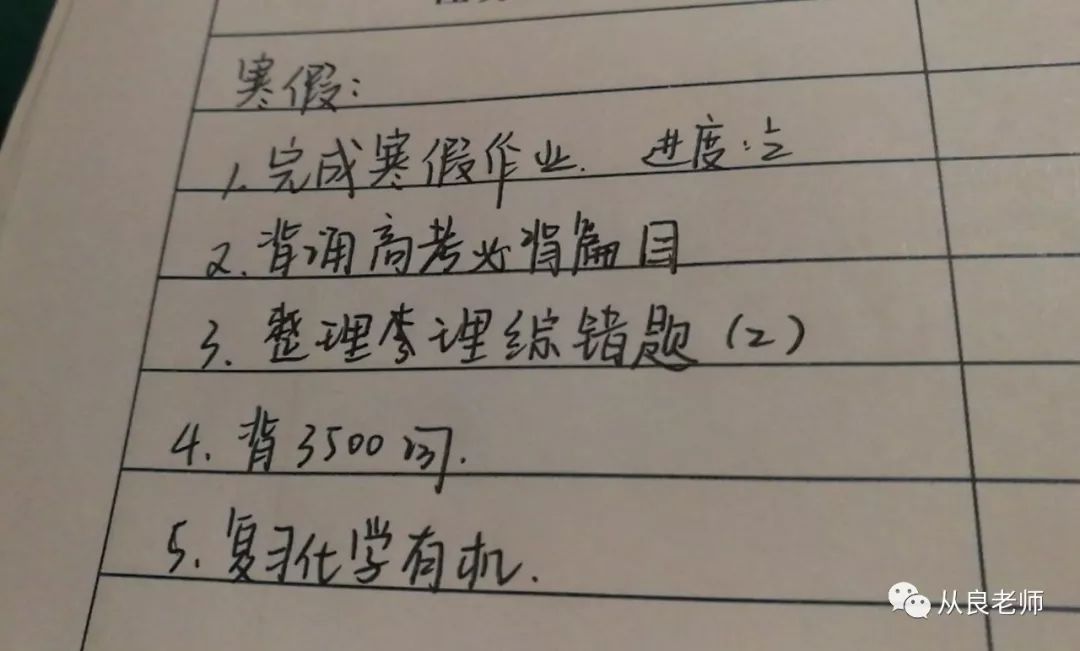 寒假:
1. 完成寒假作业. 进度:1/2
2. 背诵高考必背篇目
3. 整理理综错题(2)
4. 背3500词.
5. 复习化学有机.
从良老师